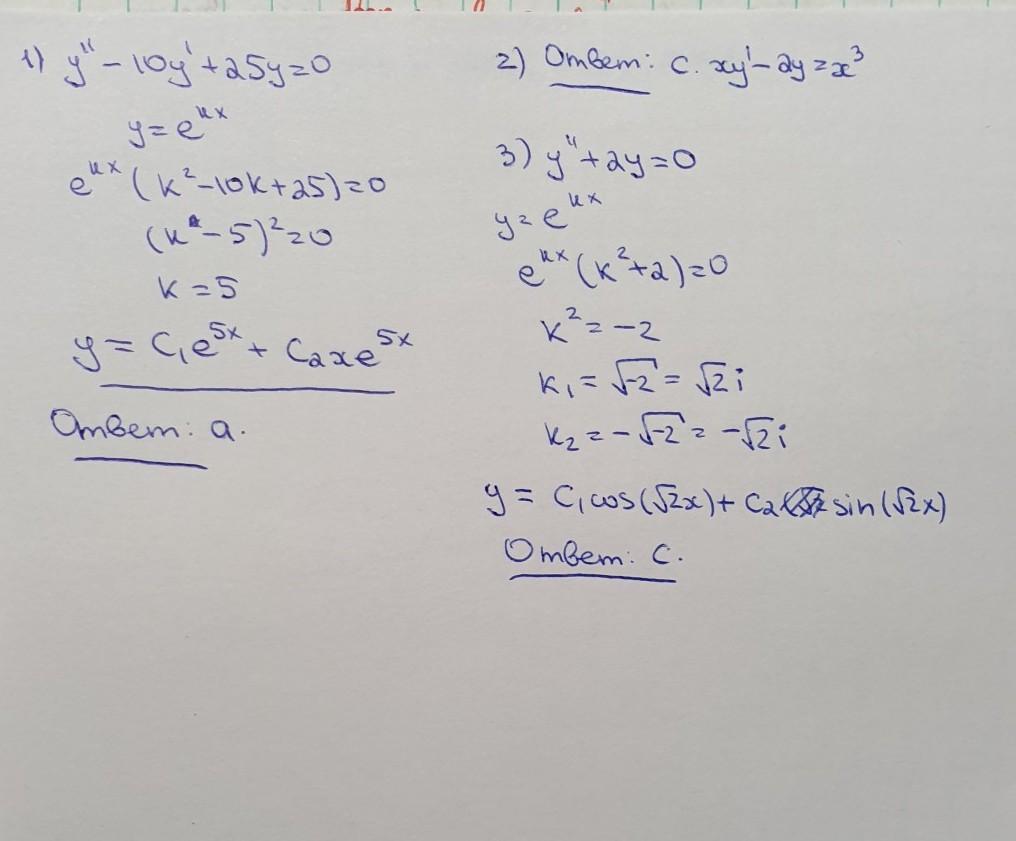 1) y'' - 10y' + 25y = 0
y = e^{kx}
e^{kx} (k² - 10k + 25) = 0
(k - 5)² = 0
k = 5
y = C₁e^{5x} + C₂xe^{5x}
Ответ: a.
2) Ответ: c. xy' - 2y = x³
3) y'' + 2y = 0
y = e^{kx}
e^{kx} (k² + 2) = 0
k² = -2
k₁ = √-2 = √2 i
k₂ = -√-2 = -√2 i
y = C₁cos(√2x) + C₂ sin(√2x)
Ответ: c.